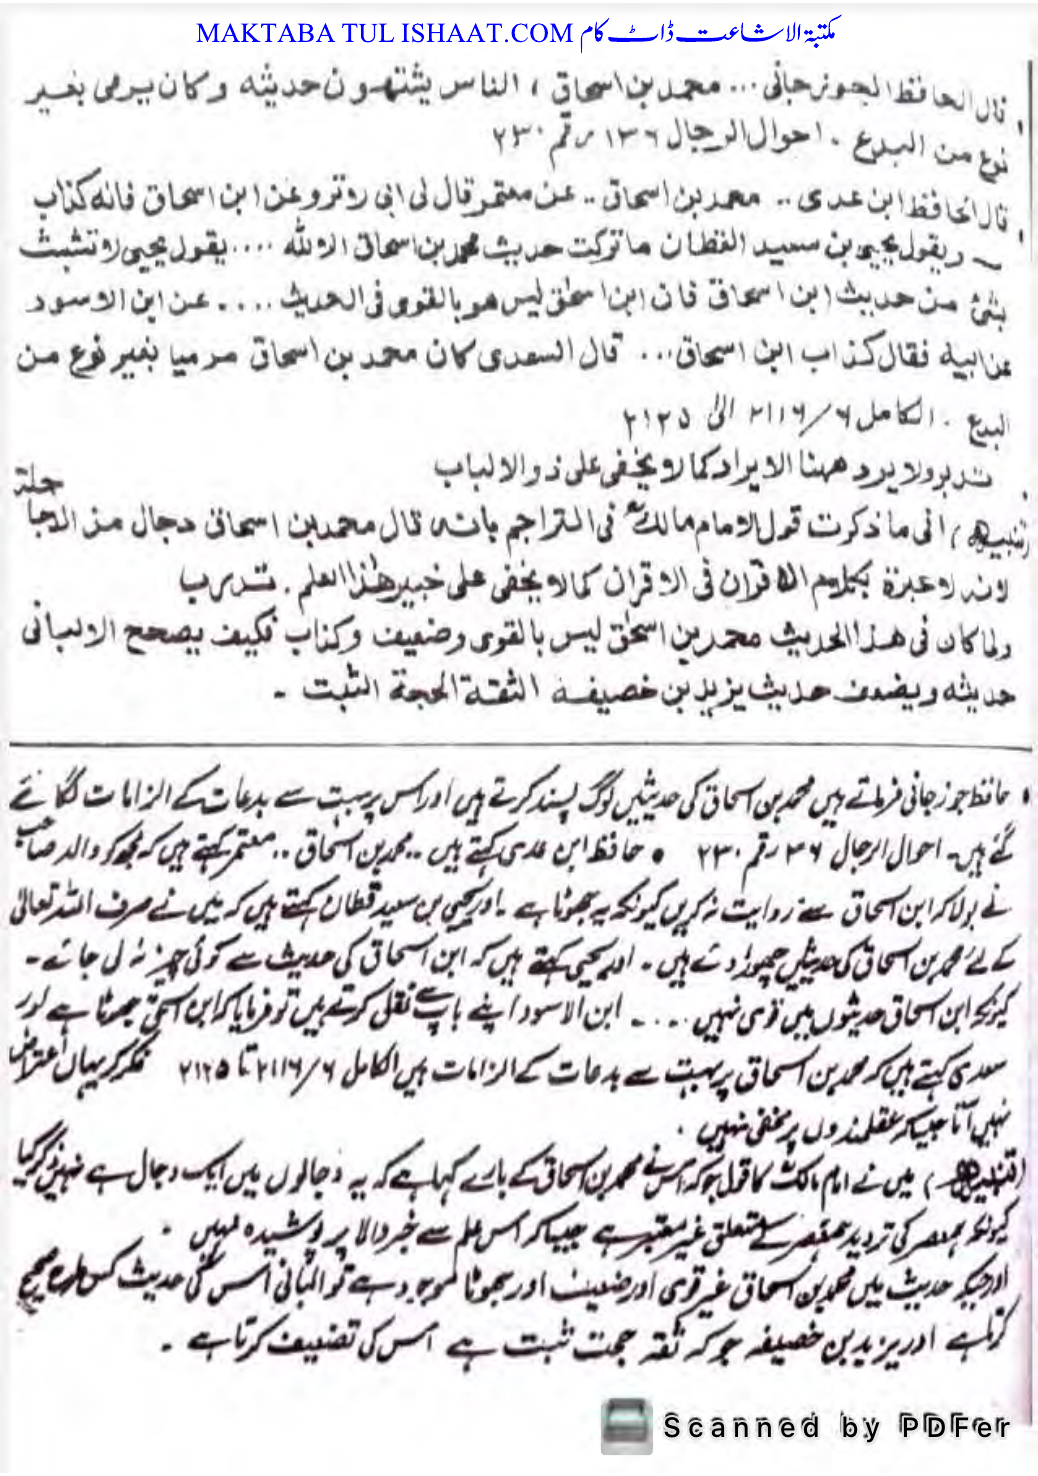 MAKTABA TUL ISHAAT.COM مکتبۃ الاشاعت ڈاٹ کام
قال الحافظ الجوزجانی ... محمد بن اسحاق ، الناس یشتهون حدیثه و کان یرمی بغیر
نوع من البدع ۔ احوال الرجال ۱۳۶ رقم ۲۳۰
قال الحافظ ابن عدی .. محمد بن اسحاق .. عن معتمر قال لی ابی لا ترو عن ابن اسحاق فانه کذاب
ویقول یحیی بن سعید القطان ما ترکت حدیث محمد بن اسحاق الا لله .... یقول یحیی لا تثبث
بشئ من حدیث ابن اسحاق فان ابن اسحٰق لیس هو بالقوی فی الحدیث .... عن ابن الاسود
عن ابیه فقال کذاب ابن اسحاق ... قال السعدی کان محمد بن اسحاق مرمیا بغیر نوع من
البدع ۔ الکامل ۶/۲۱۱۶ الی ۲۱۲۵
تدبر ولا یرد ههنا الایراد کما لا یخفی علی ذو الالباب
(تنبیه) انی ما ذکرت قول الامام مالک فی التراجم بانه قال محمد بن اسحاق دجال من الدجاجلة
لانه لا عبرة بکلام الاقران فی الاقران کما لا یخفی علی خبیر هٰذا العلم . تدرب
ولما کان فی هذا الحدیث محمد بن اسحٰق لیس بالقوی وضعیف وکذاب فکیف یصحح الالبانی
حدیثه ویضعف حدیث یزید بن خصیفه الثقة الحجة الثبت ۔
حافظ جوزجانی فرماتے ہیں محمد بن اسحاق کی حدیثیں لوگ پسند کرتے ہیں اور اس پر بہت سے بدعات کے الزامات لگائے
گئے ہیں۔ احوال الرجال ۱۳۶ رقم ۲۳۰ • حافظ ابن عدی کہتے ہیں .. محمد بن اسحاق .. معتمر کہتے ہیں کہ مجھ کو والد صاحب
نے بولا کہ ابن اسحاق سے روایت نہ کریں کیونکہ یہ جھوٹا ہے ۔ اور یحیی بن سعید قطان کہتے ہیں کہ میں نے صرف اللہ تعالیٰ
کے لئے محمد بن اسحاق کی حدیثیں چھوڑ دئے ہیں ۔ اور یحیی کہتے ہیں کہ ابن اسحاق کی حدیث سے کوئی چیز نہ لی جائے ۔
کیونکہ ابن اسحاق حدیثوں میں قوی نہیں .... ابن الاسود اپنے باپ سے نقل کرتے ہیں تو فرمایا کہ ابن اسحٰق جھوٹا ہے اور
سعدی کہتے ہیں کہ محمد بن اسحاق پر بہت سے بدعات کے الزامات ہیں الکامل ۶/۲۱۱۶ تا ۲۱۲۵ فکر کر یہاں اعتراض
نہیں آتا جیسا کہ عقلمندوں پر مخفی نہیں ۔
(تنبیہ) میں نے امام مالک کا قول جو کہ اس نے محمد بن اسحاق کے بارے کہا ہے کہ یہ دجالوں میں ایک دجال ہے نہیں ذکر کیا
کیونکہ ہمعصر کی تردید ہمعصر کے متعلق غیر معتبر ہے جیسا کہ اس علم سے خبر والا پر پوشیدہ نہیں ۔
اور جبکہ حدیث میں محمد بن اسحاق غیر قوی اور ضعیف اور جھوٹا موجود ہے تو البانی اس کی حدیث کس طرح صحیح
کرتا ہے اور یزید بن خصیفہ جو کہ ثقہ حجت ثبت ہے اس کی تضعیف کرتا ہے ۔
Scanned by PDFer